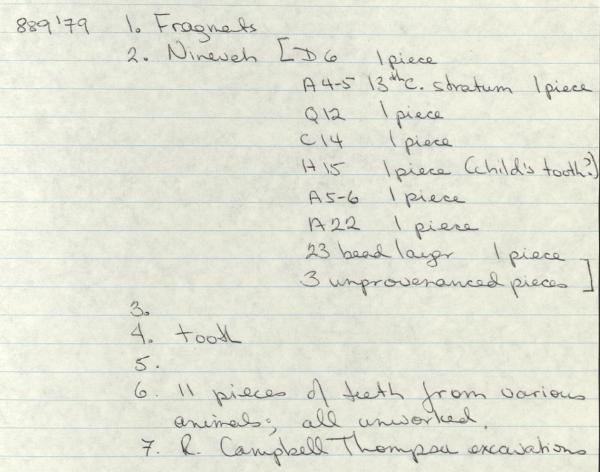 889'79 1. Fragmets
2. Nineveh [D6 1 piece
A4-5 13th C. stratum 1 piece
Q12 1 piece
C14 1 piece
H15 1 piece (child's tooth?)
A5-6 1 piece
A22 1 piece
23 bead layer 1 piece
3 unprovenanced pieces ]
3.
4. tooth
5.
6. 11 pieces of teeth from various
animals; all unworked.
7. R. Campbell Thompson excavations